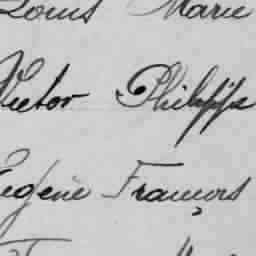 Louis Marie
Victor Philippe
Eugène François